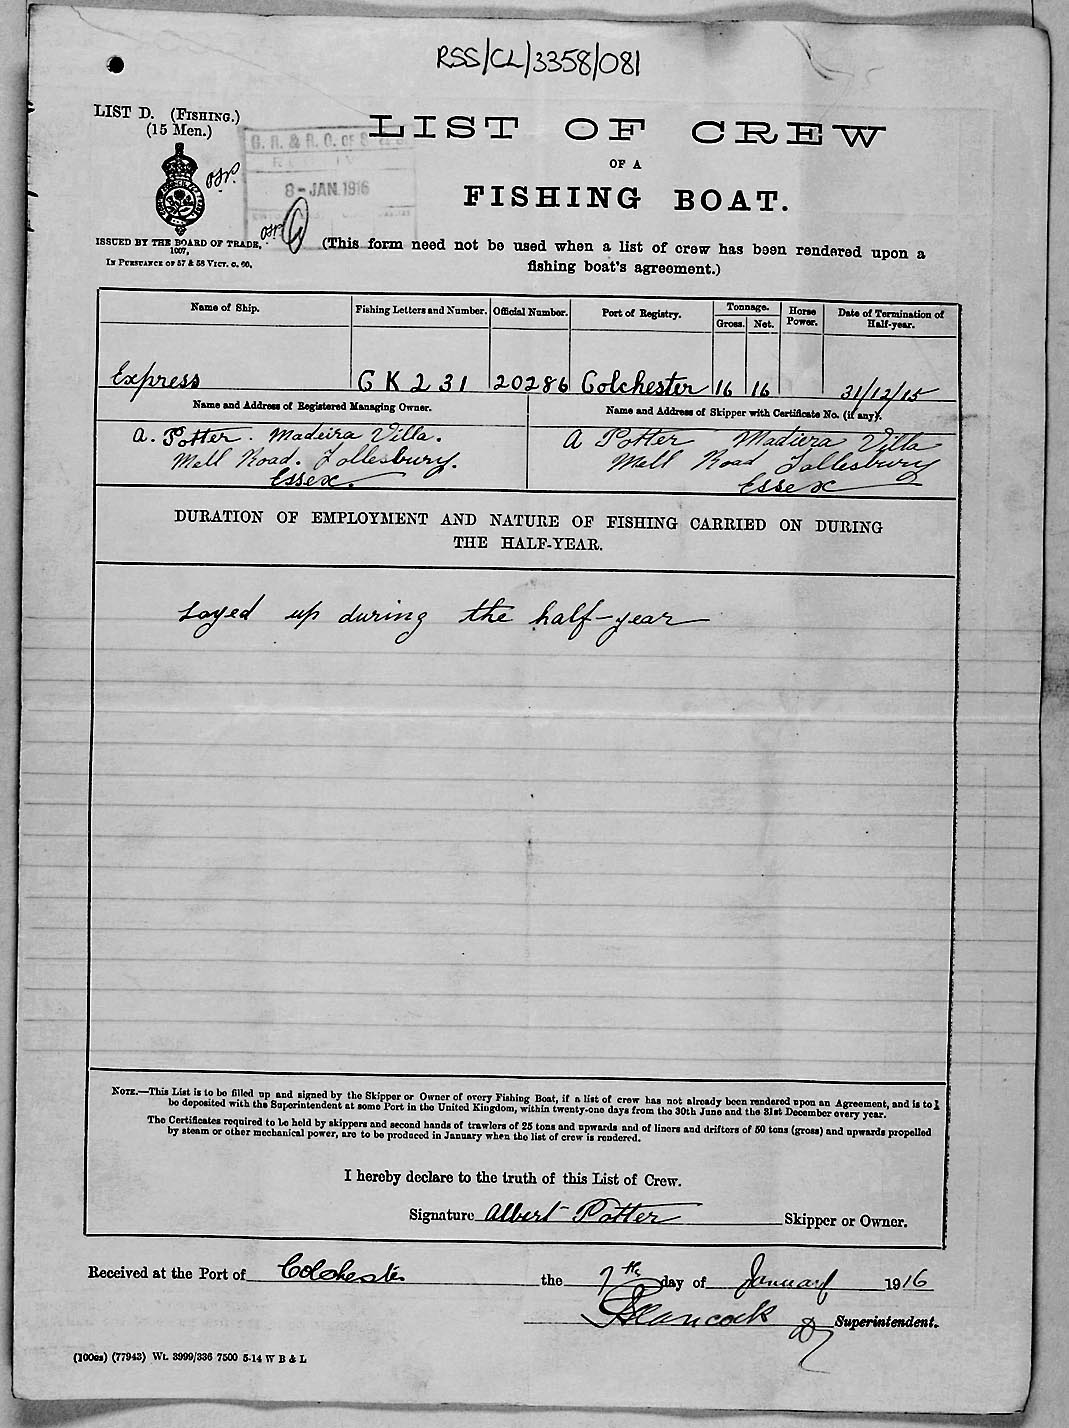 RSS/CL/3358/081
LIST D. (FISHING.)
(15 Men.)
8-JAN.1916
ISSUED BY THE BOARD OF TRADE,
1907,
IN PURSUANCE OF 57 & 58 VICT. C. 60.
LIST OF CREW
OF A
FISHING BOAT.
(This form need not be used when a list of crew has been rendered upon a
fishing boat's agreement.)
Name of Ship. Fishing Letters and Number. Official Number. Port of Registry. Tonnage. Gross. Net. Horse Power. Date of Termination of Half-year.
Express C K 231 20286 Colchester 16 16 31/12/15
Name and Address of Registered Managing Owner. Name and Address of Skipper with Certificate No. (if any).
A. Potter. Madeira Villa. A Potter Madiera Villa
Mell Road. Tollesbury. Mell Road Tollesbury
Essex. Essex
DURATION OF EMPLOYMENT AND NATURE OF FISHING CARRIED ON DURING
THE HALF-YEAR.
Layed up during the half-year
NOTE.—This List is to be filled up and signed by the Skipper or Owner of every Fishing Boat, if a list of crew has not already been rendered upon an Agreement, and is to
be deposited with the Superintendent at some Port in the United Kingdom, within twenty-one days from the 30th June and the 31st December every year.
The Certificates required to be held by skippers and second hands of trawlers of 25 tons and upwards and of liners and drifters of 50 tons (gross) and upwards propelled
by steam or other mechanical power, are to be produced in January when the list of crew is rendered.
I hereby declare to the truth of this List of Crew.
Signature Albert Potter Skipper or Owner.
Received at the Port of Colchester the 7th day of January 1916
Hancock Superintendent.
(100es) (77943) Wt. 3999/336 7500 5-14 W B & L